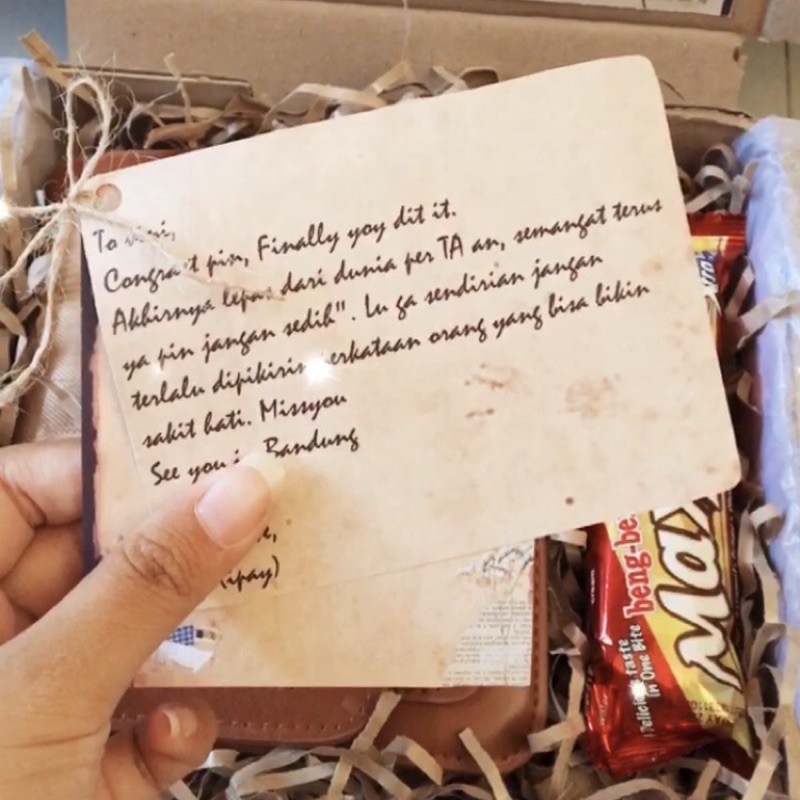 To vipi,
Congra't pin, Finally yoy dit it.
Akhirnya lepas dari dunia per TA an, semangat terus
ya pin jangan sedih". Lu ga sendirian jangan
terlalu dipikirin perkataan orang yang bisa bikin
sakit hati. Missyou
See you in Bandung
(ipay)
beng-beng
Max
Delicious taste
in One Bite